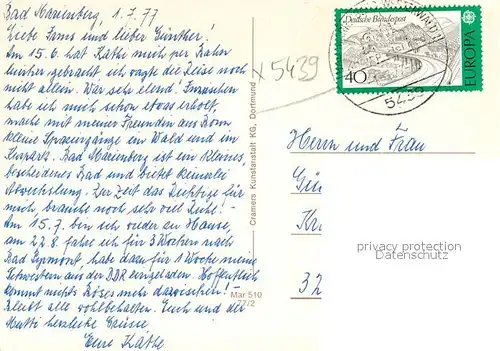 Bad Marienberg, 1.7.77
Liebe Fam's und lieber Günther!
Am 15.6. hat Käthi mich per Bahn
hierher gebracht ich wagte die Reise noch
nicht allein. War sehr elend! Inzwischen
habe ich mich schon etwas erholt,
mache mit meiner Freundin aus Bonn
kleine Spaziergänge im Wald und im
Kurpark. Bad Marienberg ist ein kleines,
bescheidenes Bad und bietet keinerlei
Abwechslung. Zur Zeit das Richtige für
mich, brauche noch sehr viel Ruhe! -
Am 15.7. bin ich wieder zu Hause,
am 22.8. fahre ich für 3 Wochen nach
Bad Pyrmont, habe dazu für 1 Woche meine
Schwestern aus der DDR eingeladen. Hoffentlich
kommt nichts Böses mehr dazwischen! -
Bleibt alle wohlbehalten. Euch und der
Mutti herzliche Grüsse
Eure Käthe
x 5439
Cramers Kunstanstalt KG, Dortmund
Mar 510
77/2
Deutsche Bundespost
40
EUROPA
5439
Herrn und Frau
Gü
Kr
32
privacy protection
Datenschutz